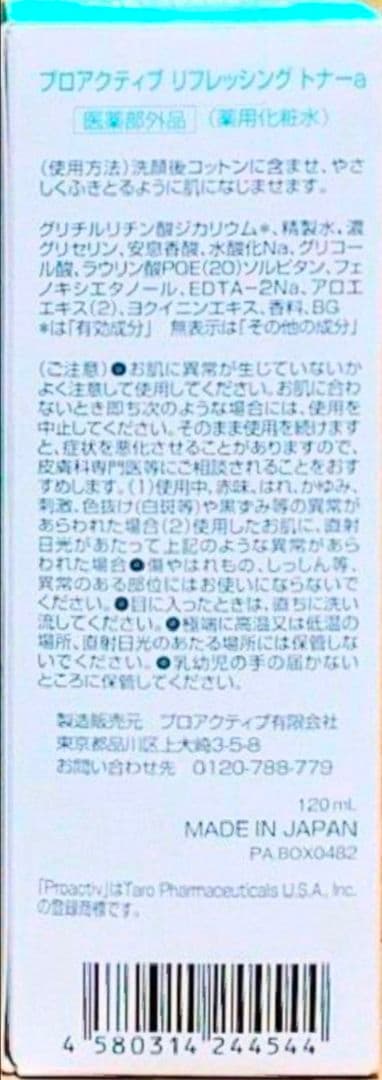 プロアクティブ リフレッシング トナーa
医薬部外品 (薬用化粧水)
(使用方法)洗顔後コットンに含ませ、やさ
しくふきとるように肌になじませます。
グリチルリチン酸ジカリウム*、精製水、濃
グリセリン、安息香酸、水酸化Na、グリコー
ル酸、ラウリン酸POE(20)ソルビタン、フェ
ノキシエタノール、EDTA-2Na、アロエ
エキス(2)、ヨクイニンエキス、香料、BG
*は「有効成分」 無表示は「その他の成分」
(ご注意)●お肌に異常が生じていないか
よく注意して使用してください。お肌に合わ
ないとき即ち次のような場合には、使用を
中止してください。そのまま使用を続けます
と、症状を悪化させることがありますので、
皮膚科専門医等にご相談されることをおす
すめします。(1)使用中、赤味、はれ、かゆみ、
刺激、色抜け(白斑等)や黒ずみ等の異常が
あらわれた場合(2)使用したお肌に、直射
日光があたって上記のような異常があら
われた場合●傷やはれもの、しっしん等、
異常のある部位にはお使いにならないで
ください。●目に入ったときは、直ちに洗い
流してください。●極端に高温又は低温の
場所、直射日光のあたる場所には保管しな
いでください。●乳幼児の手の届かない
ところに保管してください。
製造販売元 プロアクティブ有限会社
東京都品川区上大崎3-5-8
お問い合わせ先 0120-788-779
120 mL
MADE IN JAPAN
PA.BOX0482
「Proactiv」はTaro Pharmaceuticals U.S.A., Inc.
の登録商標です。
4 580314 244544